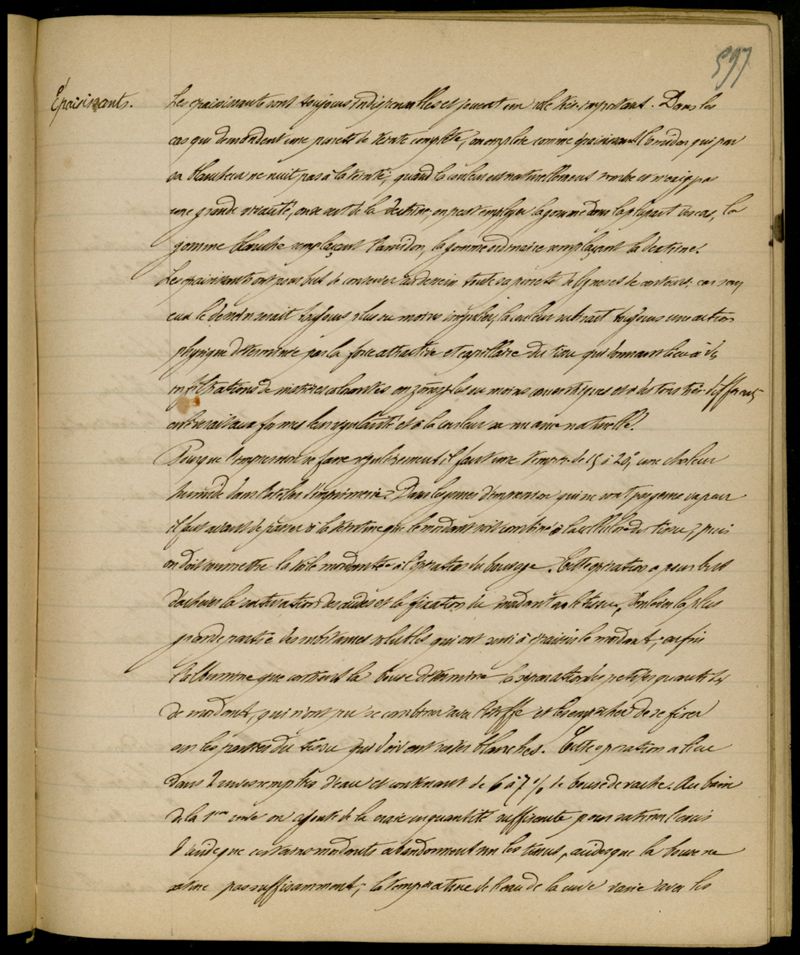 597
Épaississants.
Les épaississants sont toujours indispensables et jouent un rôle très important. Dans les
cas qui demandent une pureté de teinte complète, on emploie comme épaississant l'amidon qui par
sa blancheur ne nuit pas à la teinte, quand la couleur est naturellement sombe et n'exige pas
une grande vivacité, on se sert de la dextrine, on peut employer la gomme dans la plupart des cas, la
gomme blanche remplaçant l'amidon, la gomme ordinaire remplaçant la dextrine.
Les épaississants ont pour but de conserver au dessin toute sa pureté de lignes et de contours, car sans
eux le dessin serait toujours plus ou moins irrégulier, la couleur subirait toujours une action
physique déterminée par la force attractive et capillaire du tissu qui donnerait lieu à des
infiltrations de matières colorantes en zones plus ou moins concentriques et à des tons très différents
enlevant aux formes leur régularité et à la couleur sa nuance naturelle.
Pour que l'impression se fasse régulièrement il faut une temp. de 15 à 25°, une chaleur
humide dans l'atelier d'imprimerie. Dans les genres d'impression qui ne sont pas genre vapeur
il faut avant de passer à la teinture que le mordant soit combiné à la cellulose du tissu, puis
on doit soumettre la toile mordantée à l'opération du bousage. Cette opération a pour but
d'achever la saturation des acides et la fixation du mordant au tissu, d'enlever la plus
grande partie des substances solubles qui ont servi à épaissir le mordant, enfin
l'albumine que contient la bouse détermine la séparation des petites quantités
de mordant, qui n'ont pu se combiner avec l'étoffe et les empêcher de se fixer
sur les parties du tissu qui doivent rester blanches. Cette opération a lieu
dans 2 cuves remplies d'eau et contenant de 6 à 7 % de bouse de vache. Au bain
de la 1ère cuve on ajoute de la craie en quantité suffisante pour saturer l'excès
d'acide que certains mordants abandonnent sur les tissus, acide que la bouse ne
sature pas suffisamment; la température de l'eau de la cuve varie avec les